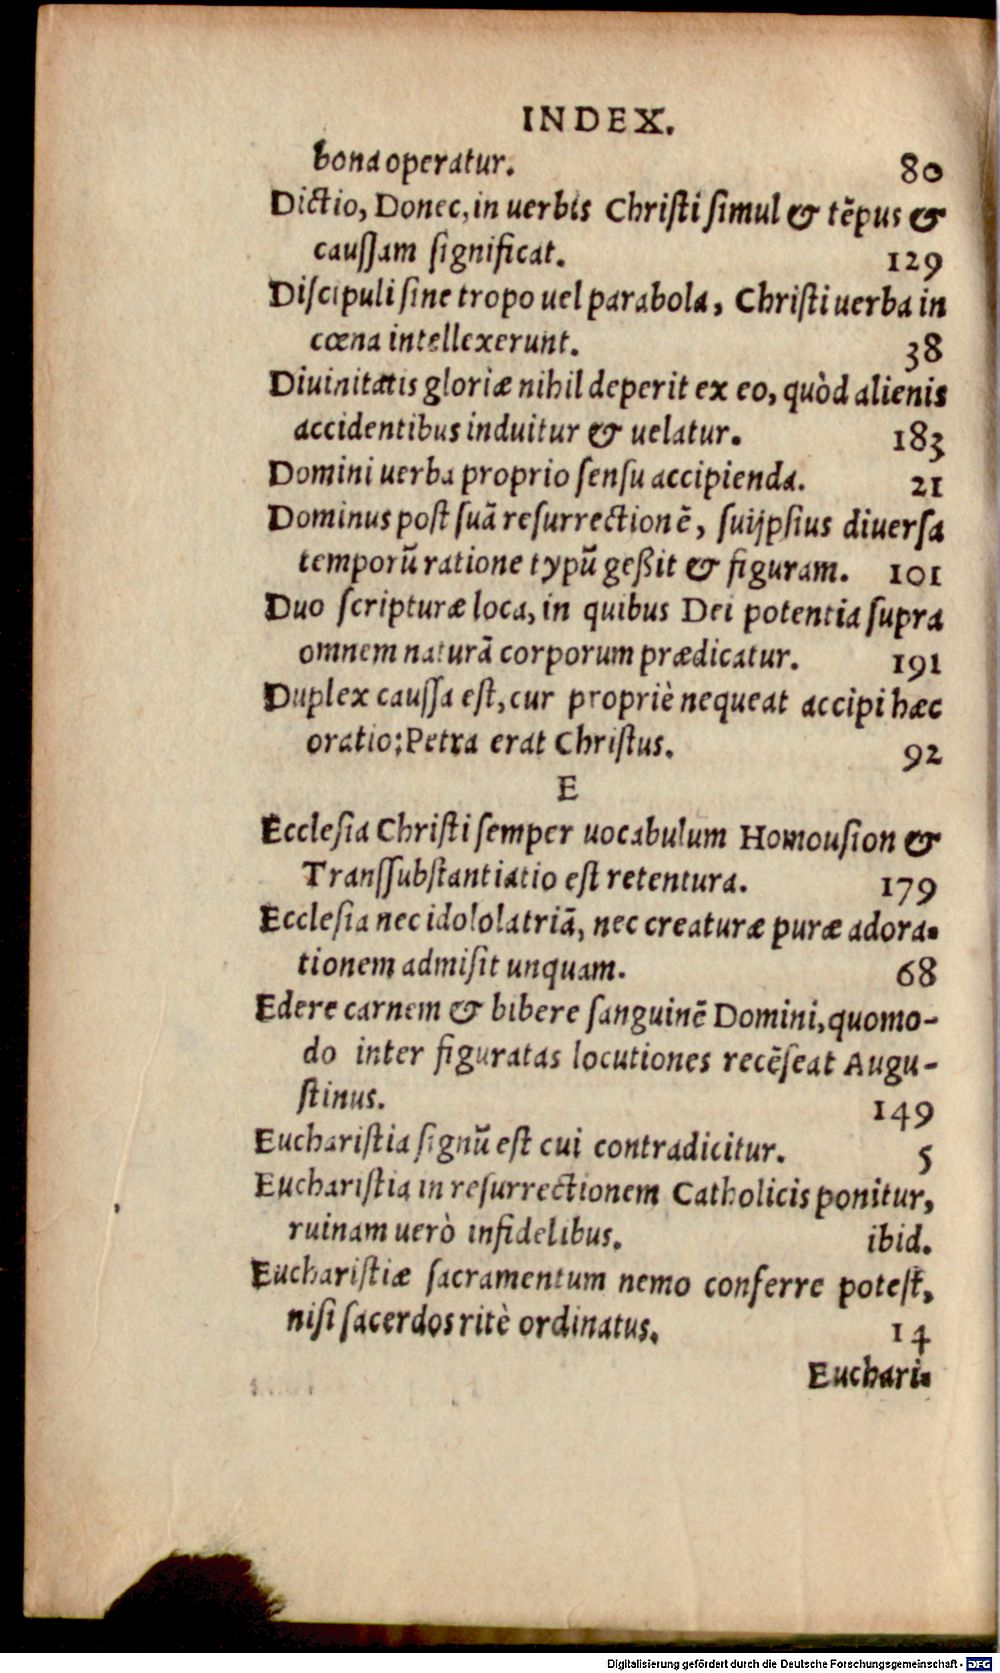 INDEX.
bona operatur. 80
Dictio, Donec, in uerbis Christi simul & tēpus &
caussam significat. 129
Discipuli sine tropo uel parabola, Christi uerba in
cœna intellexerunt. 38
Diuinitatis gloriæ nihil deperit ex eo, quòd alienis
accidentibus induitur & uelatur. 183
Domini uerba proprio sensu accipienda. 21
Dominus post suā resurrectionē, suijpsius diuersa
temporū ratione typū geßit & figuram. 101
Duo scripturæ loca, in quibus Dei potentia supra
omnem naturā corporum prædicatur. 191
Duplex caussa est, cur propriè nequeat accipi hæc
oratio: Petra erat Christus. 92
E
Ecclesia Christi semper uocabulum Homousion &
Transsubstantiatio est retentura. 179
Ecclesia nec idololatriā, nec creaturæ puræ adora-
tionem admisit unquam. 68
Edere carnem & bibere sanguinē Domini, quomo-
do inter figuratas locutiones recēseat Augu-
stinus. 149
Eucharistia signū est cui contradicitur. 5
Eucharistia in resurrectionem Catholicis ponitur,
ruinam uerò infidelibus. ibid.
Eucharistiæ sacramentum nemo conferre potest,
nisi sacerdos ritè ordinatus. 14
Euchari-
Digitalisierung gefördert durch die Deutsche Forschungsgemeinschaft - DFG